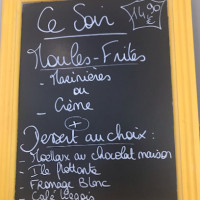 Ce Soir
14,90 €
Moules-Frites
- Marinières
ou
- Crème
+
Dessert au choix :
- Moelleux au chocolat maison
- Ile flottante
- Fromage Blanc
- Café Liégeois